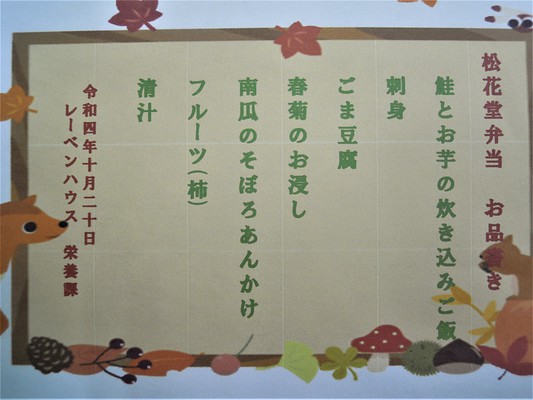 松花堂弁当　お品書き
鮭とお芋の炊き込みご飯
刺身
ごま豆腐
春菊のお浸し
南瓜のそぼろあんかけ
フルーツ(柿)
清汁
令和四年十月二十日
レーベンハウス　栄養課